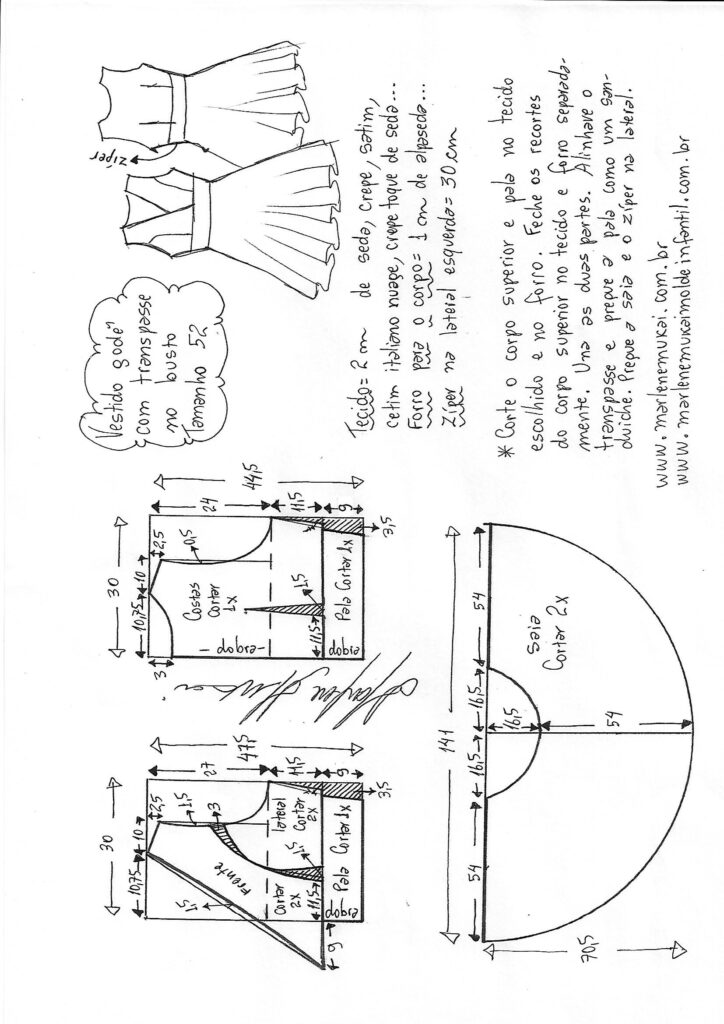 Vestido godê
com transpasse
no busto
Tamanho 52
zíper
Tecido= 2 m de seda, crepe, satim,
cetim italiano nuage, crepe toque de seda...
Forro para o corpo= 1 cm de alpaseda...
Zíper na lateral esquerda= 30 cm
* Corte o corpo superior e pala no tecido
escolhido e no forro. Feche os recortes
do corpo superior no tecido e forro separada-
mente. Una as duas partes. Alinhave o
transpasse e pregue a pala como um san-
duiche. Pregue a saia e o zíper na lateral.
www.marlenemukai.com.br
www.marlenemukaimoldeinfantil.com.br
30
10,75
10
2,5
1,5
3
27
47,5
11,5
9
3,5
Frente
1,5
Cortar
2x
lateral
Cortar
2x
1,5
11,5
dobra
Pala Cortar 1x
9
30
10,75
10
2,5
3
0,5
24
44,5
11,5
9
3,5
Costas
Cortar
1x
-dobra-
1,5
11,5
dobra
Pala Cortar 1x
141
54
16,5
16,5
54
16,5
54
70,5
Saia
Cortar 2x